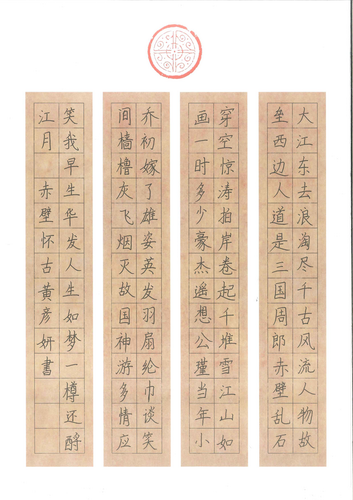 大江东去浪淘尽千古风流人物故
垒西边人道是三国周郎赤壁乱石
穿空惊涛拍岸卷起千堆雪江山如
画一时多少豪杰遥想公瑾当年小
乔初嫁了雄姿英发羽扇纶巾谈笑
间樯橹灰飞烟灭故国神游多情应
笑我早生华发人生如梦一樽还酹
江月 赤壁怀古黄彦妍書